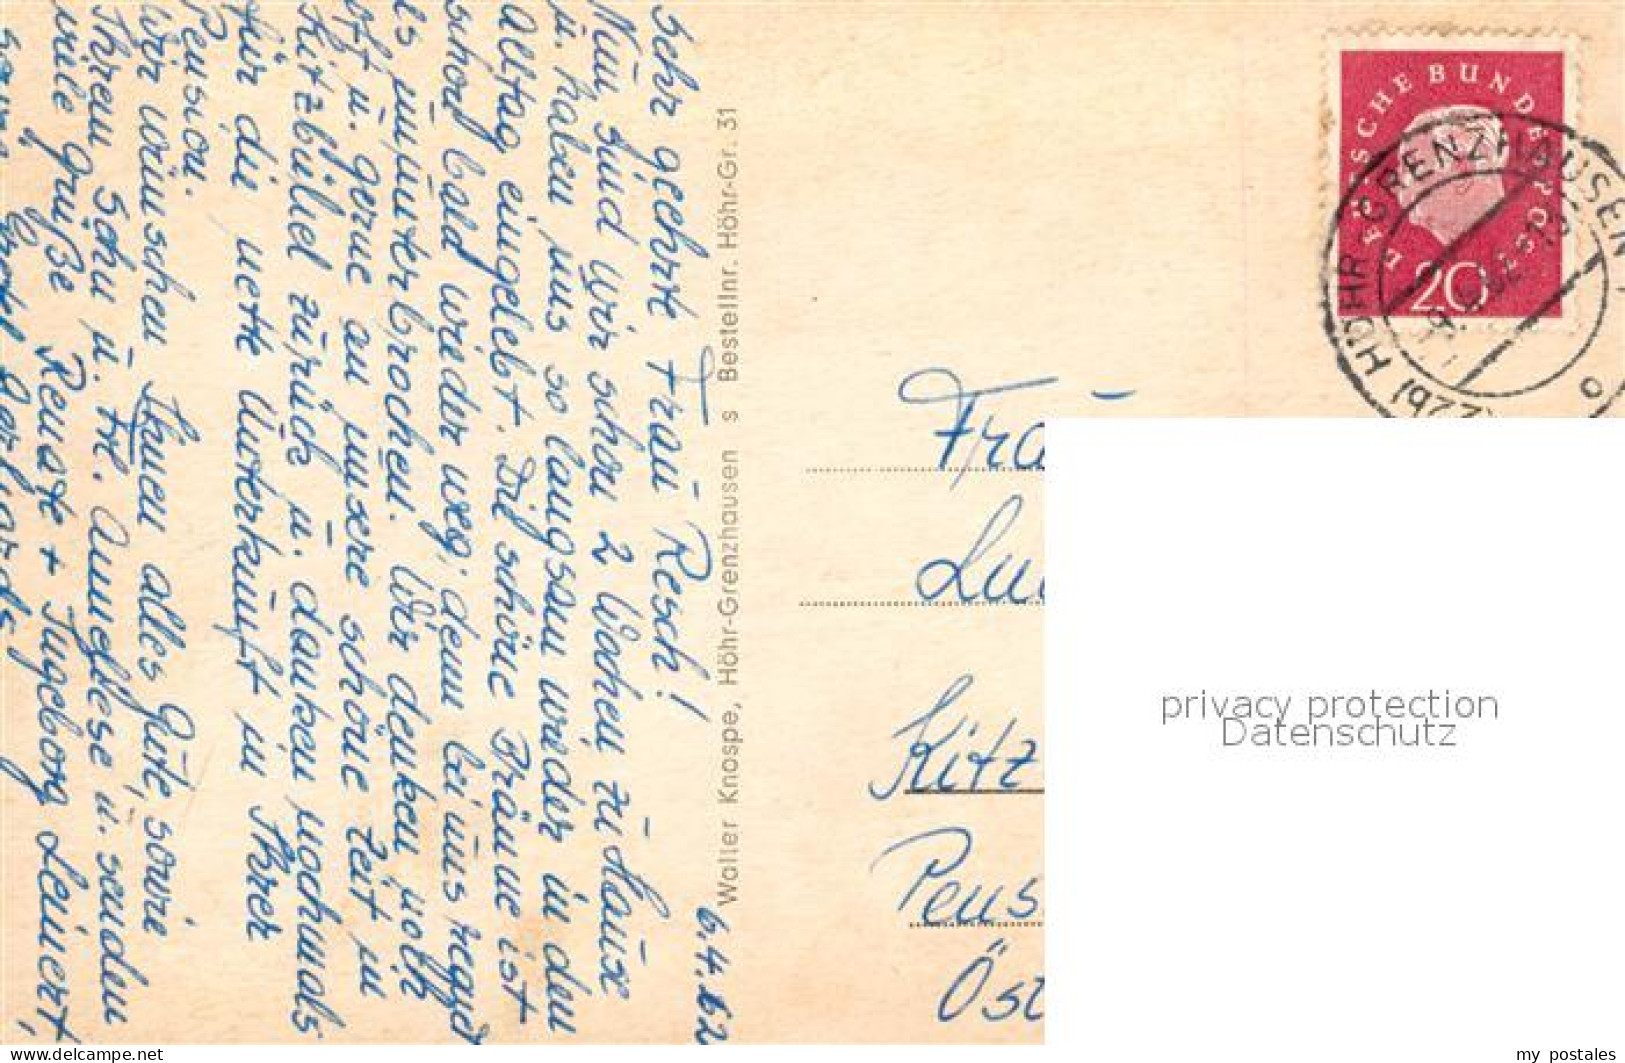 6.4.62
Sehr geehrte Frau Resch!
Nun sind wir schon 2 Wochen zu Hause
u. haben uns so langsam wieder in den
Alltag eingelebt. Die schöne Bräune ist
schon bald wieder weg; denn bei uns regnet
es ununterbrochen. Wir denken noch
oft u. gerne an unsere schöne Zeit in
Kitzbühel zurück u. danken nochmals
für die nette Unterkunft in Ihrer
Pension.
Wir wünschen Ihnen alles Gute, sowie
Ihrem Sohn u. Frl. Anneliese u. senden
viele Grüße Renate + Ingeborg Leinert,
Gerhards
Walter Knospe, Höhr-Grenzhausen s Bestellnr. Höhr-Gr. 31
DEUTSCHE BUNDESPOST
20
HÖHR-GRENZHAUSEN
Frau
Kitz
Pens
Öst
privacy protection
Datenschutz
my postales